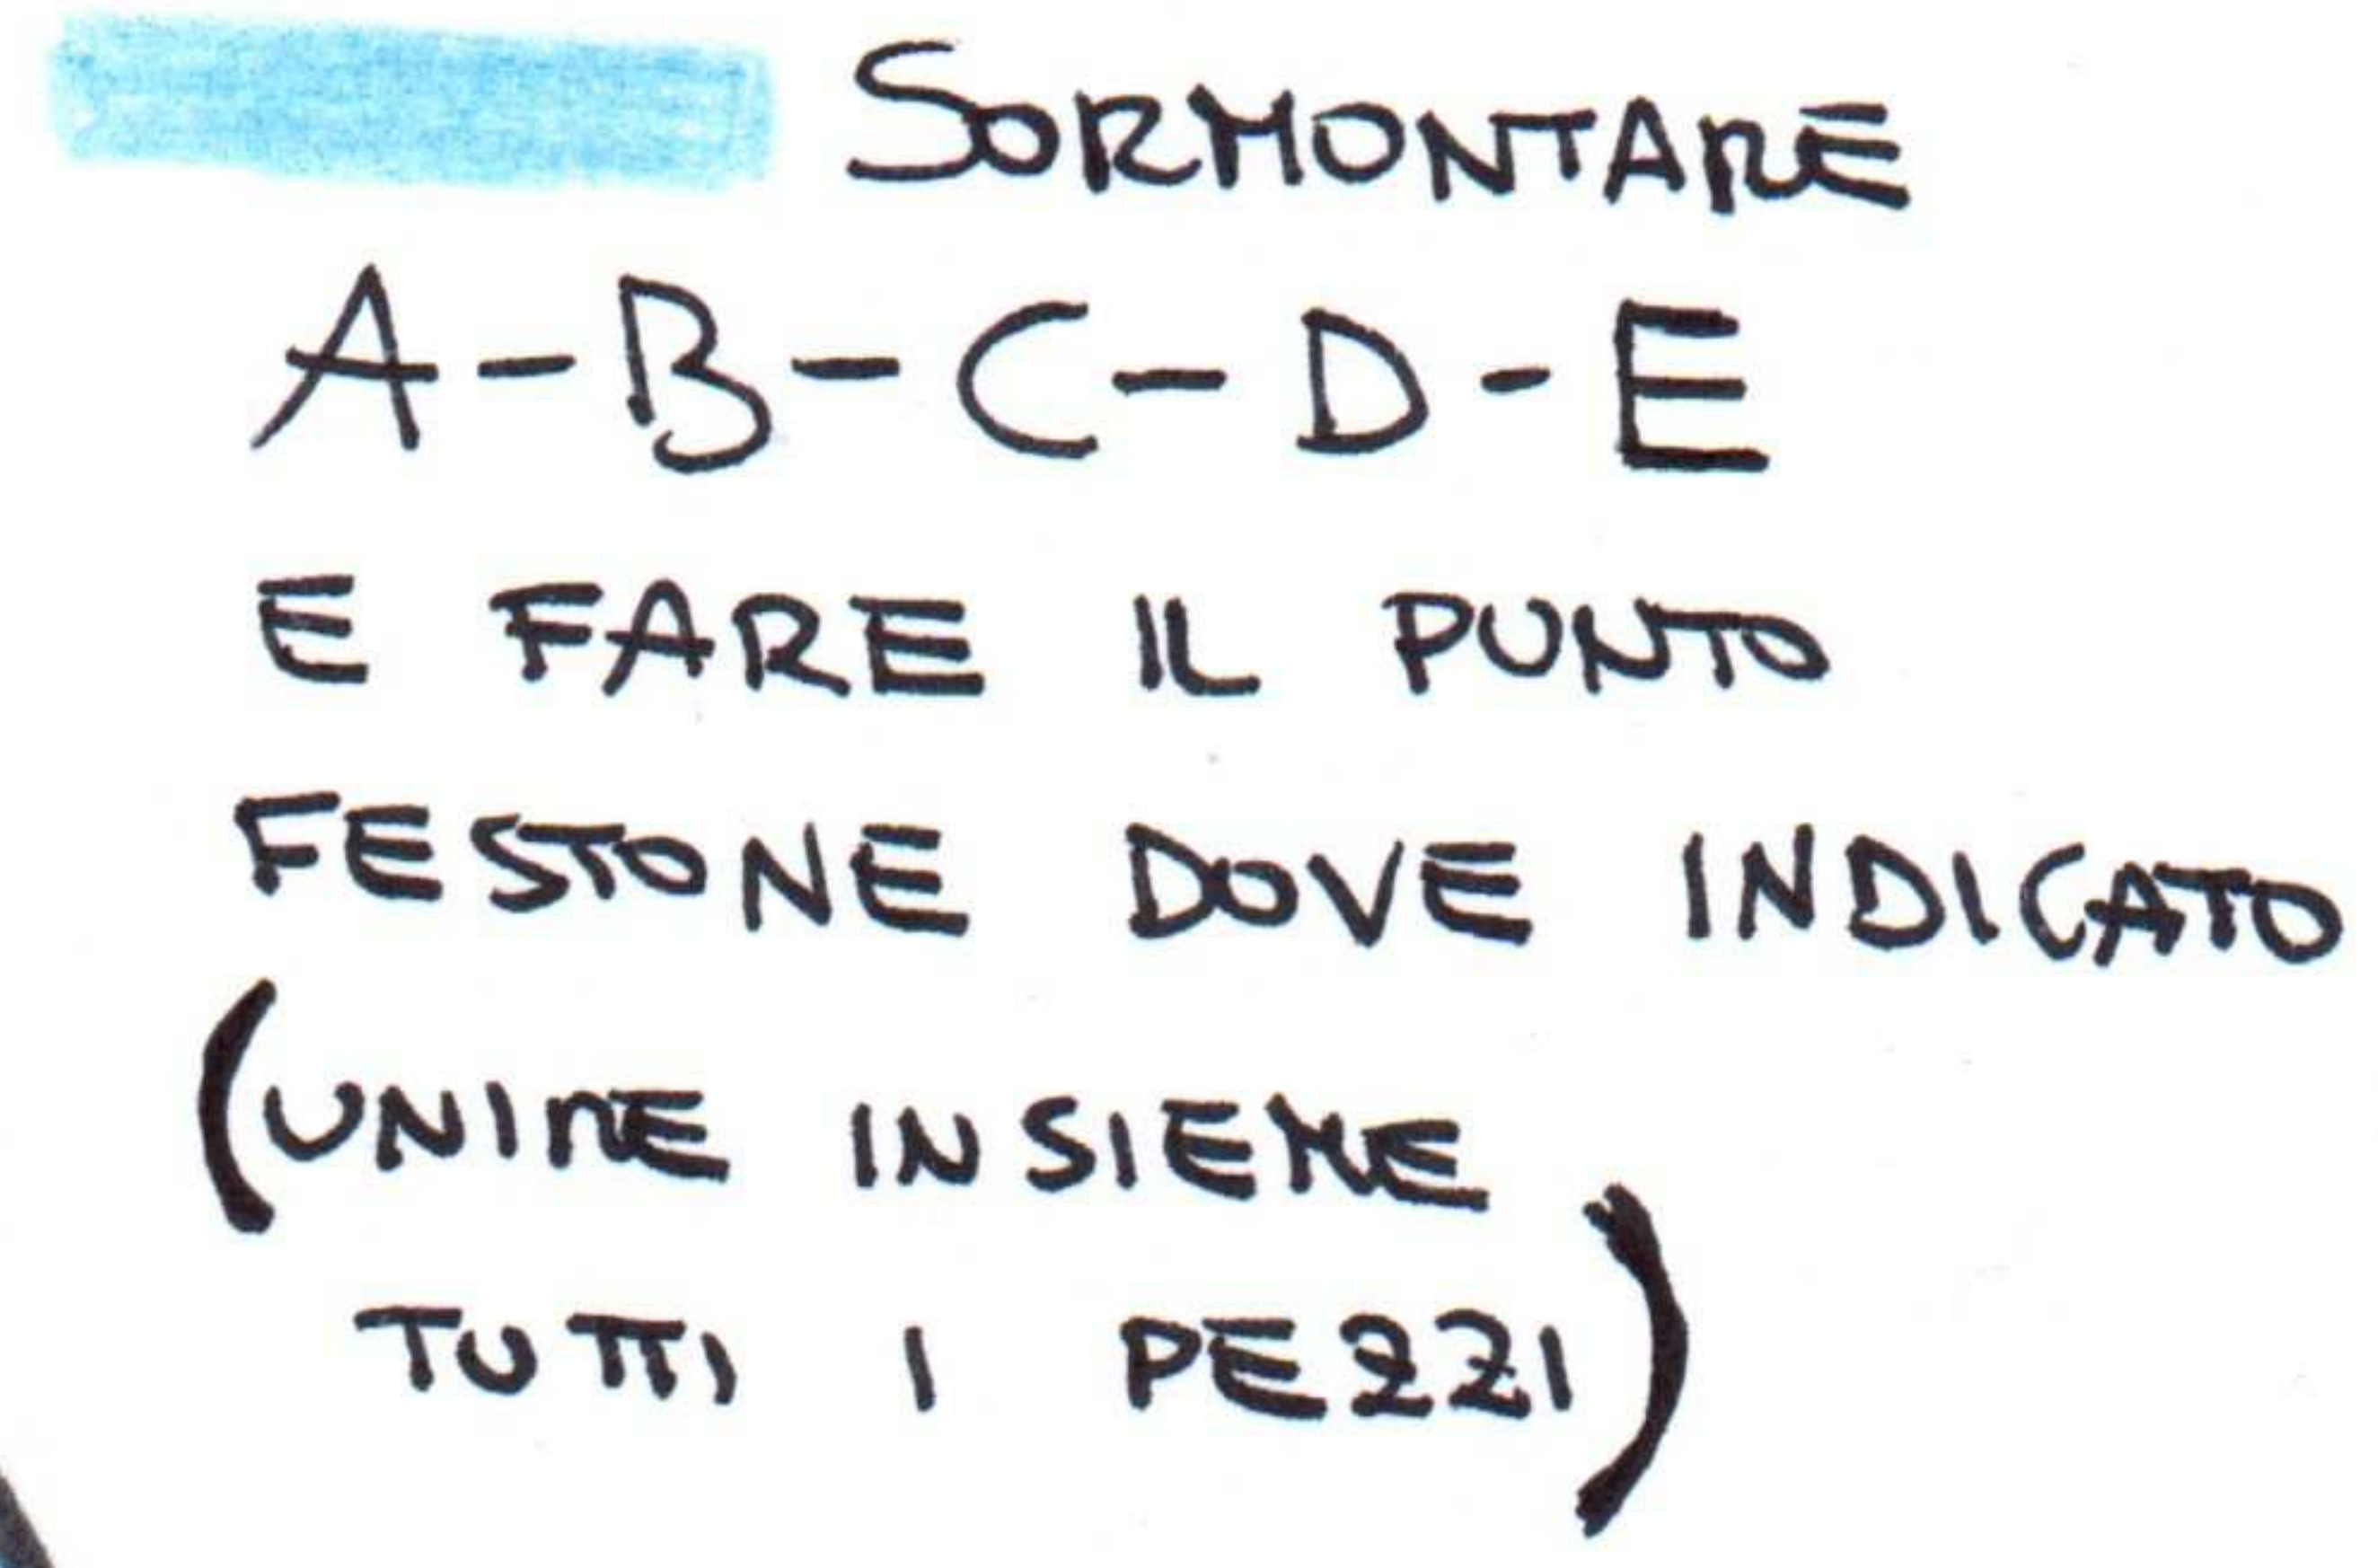 SORMONTARE
A-B-C-D-E
E FARE IL PUNTO
FESTONE DOVE INDICATO
(UNIRE INSIEME
TUTTI I PEZZI)